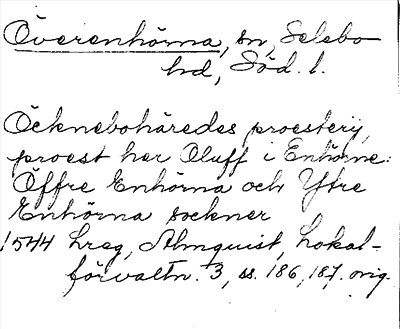 Överenhörna, sn, Selebo
hd, Söd. l.
Öcknebohäredes proestery,
proest her Oluff i Enhörne:
Öffre Enhörna och Yttre
Enhörna sockner
1544 Lreg, Almquist, Lokal-
förvaltn. 3, ss. 186, 187. orig.